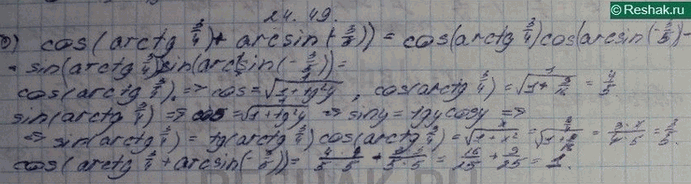 Reshak.ru
24.49.
б) cos(arctg 3/4 + arcsin(-3/5)) = cos(arctg 3/4)cos(arcsin(-3/5)) -
- sin(arctg 3/4)sin(arcsin(-3/5)) =
cos(arctg 3/4) => cos = √(1/(1+tg²y)), cos(arctg 3/4) = √(1/(1+9/16)) = 4/5
sin(arctg 3/4) => cos = √(1/(1+tg²y)) => siny = tgycosy =>
=> sin(arctg 3/4) = tg(arctg 3/4)cos(arctg 3/4) = = 3/5
cos(arctg 3/4 + arcsin(-3/5)) = 4/5 · 4/5 + 3/5 · 3/5 = 16/25 + 9/25 = 1.